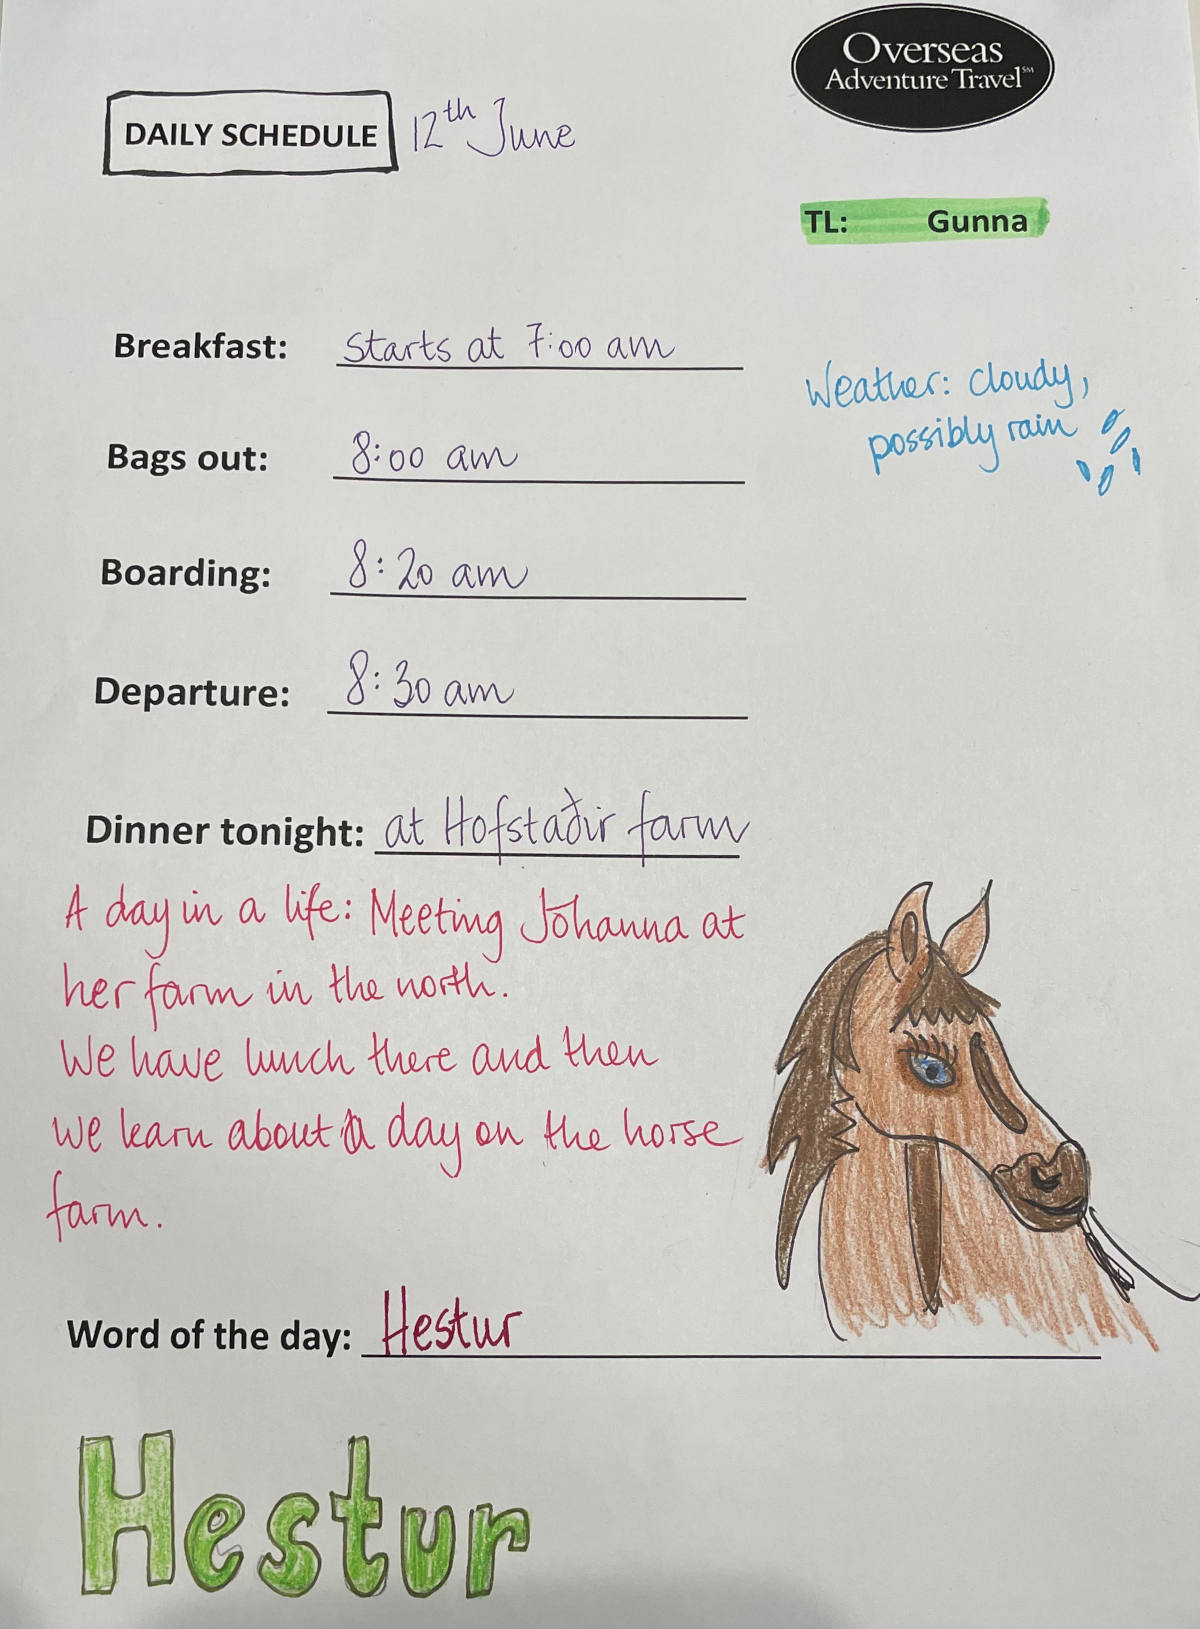 Overseas
Adventure Travel℠
DAILY SCHEDULE 12th June
TL: Gunna
Breakfast: starts at 7:00 am
Weather: cloudy,
possibly rain
Bags out: 8:00 am
Boarding: 8:20 am
Departure: 8:30 am
Dinner tonight: at Hofstaðir farm
A day in a life: Meeting Jóhanna at
her farm in the north.
We have lunch there and then
we learn about a day on the horse
farm.
Word of the day: Hestur
Hestur